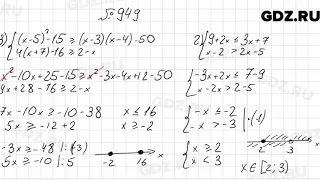 № 949
GDZ.RU
) { (x-5)²-15 ≥ (x-3)(x-4)-50
4(x+7)-16 ≥ 2-x
x²-10x+25-15 ≥ x²-3x-4x+12-50
4x+28-16 ≥ 2-x
7x-10x ≥ -10-38
5x ≥ -12+2
x ≤ 16
x ≥ -2
-3x ≥ -48 |:(-3)
5x ≥ -10 |:5
-2 16 x
2) { 9+2x ≤ 3x+7
x-2 > 2x-5
{ -3x+2x ≤ 7-9
x-2x > 2-5
{ -x ≤ -2
-x > -3 |·(-1)
{ x ≥ 2
x < 3
2 3 x
x∈[2;3)
GDZ.RU